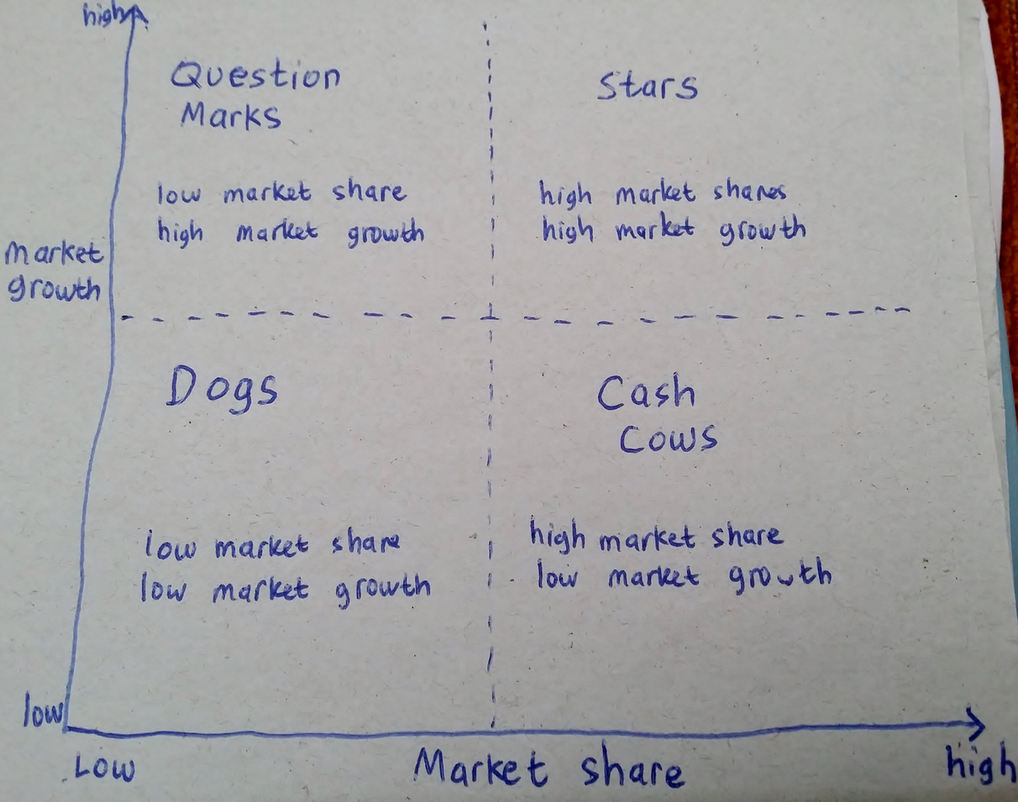 high
Question
Marks
low market share
high market growth
Stars
high market shares
high market growth
market
growth
Dogs
low market share
low market growth
Cash
Cows
high market share
low market growth
low
Low
Market share
high